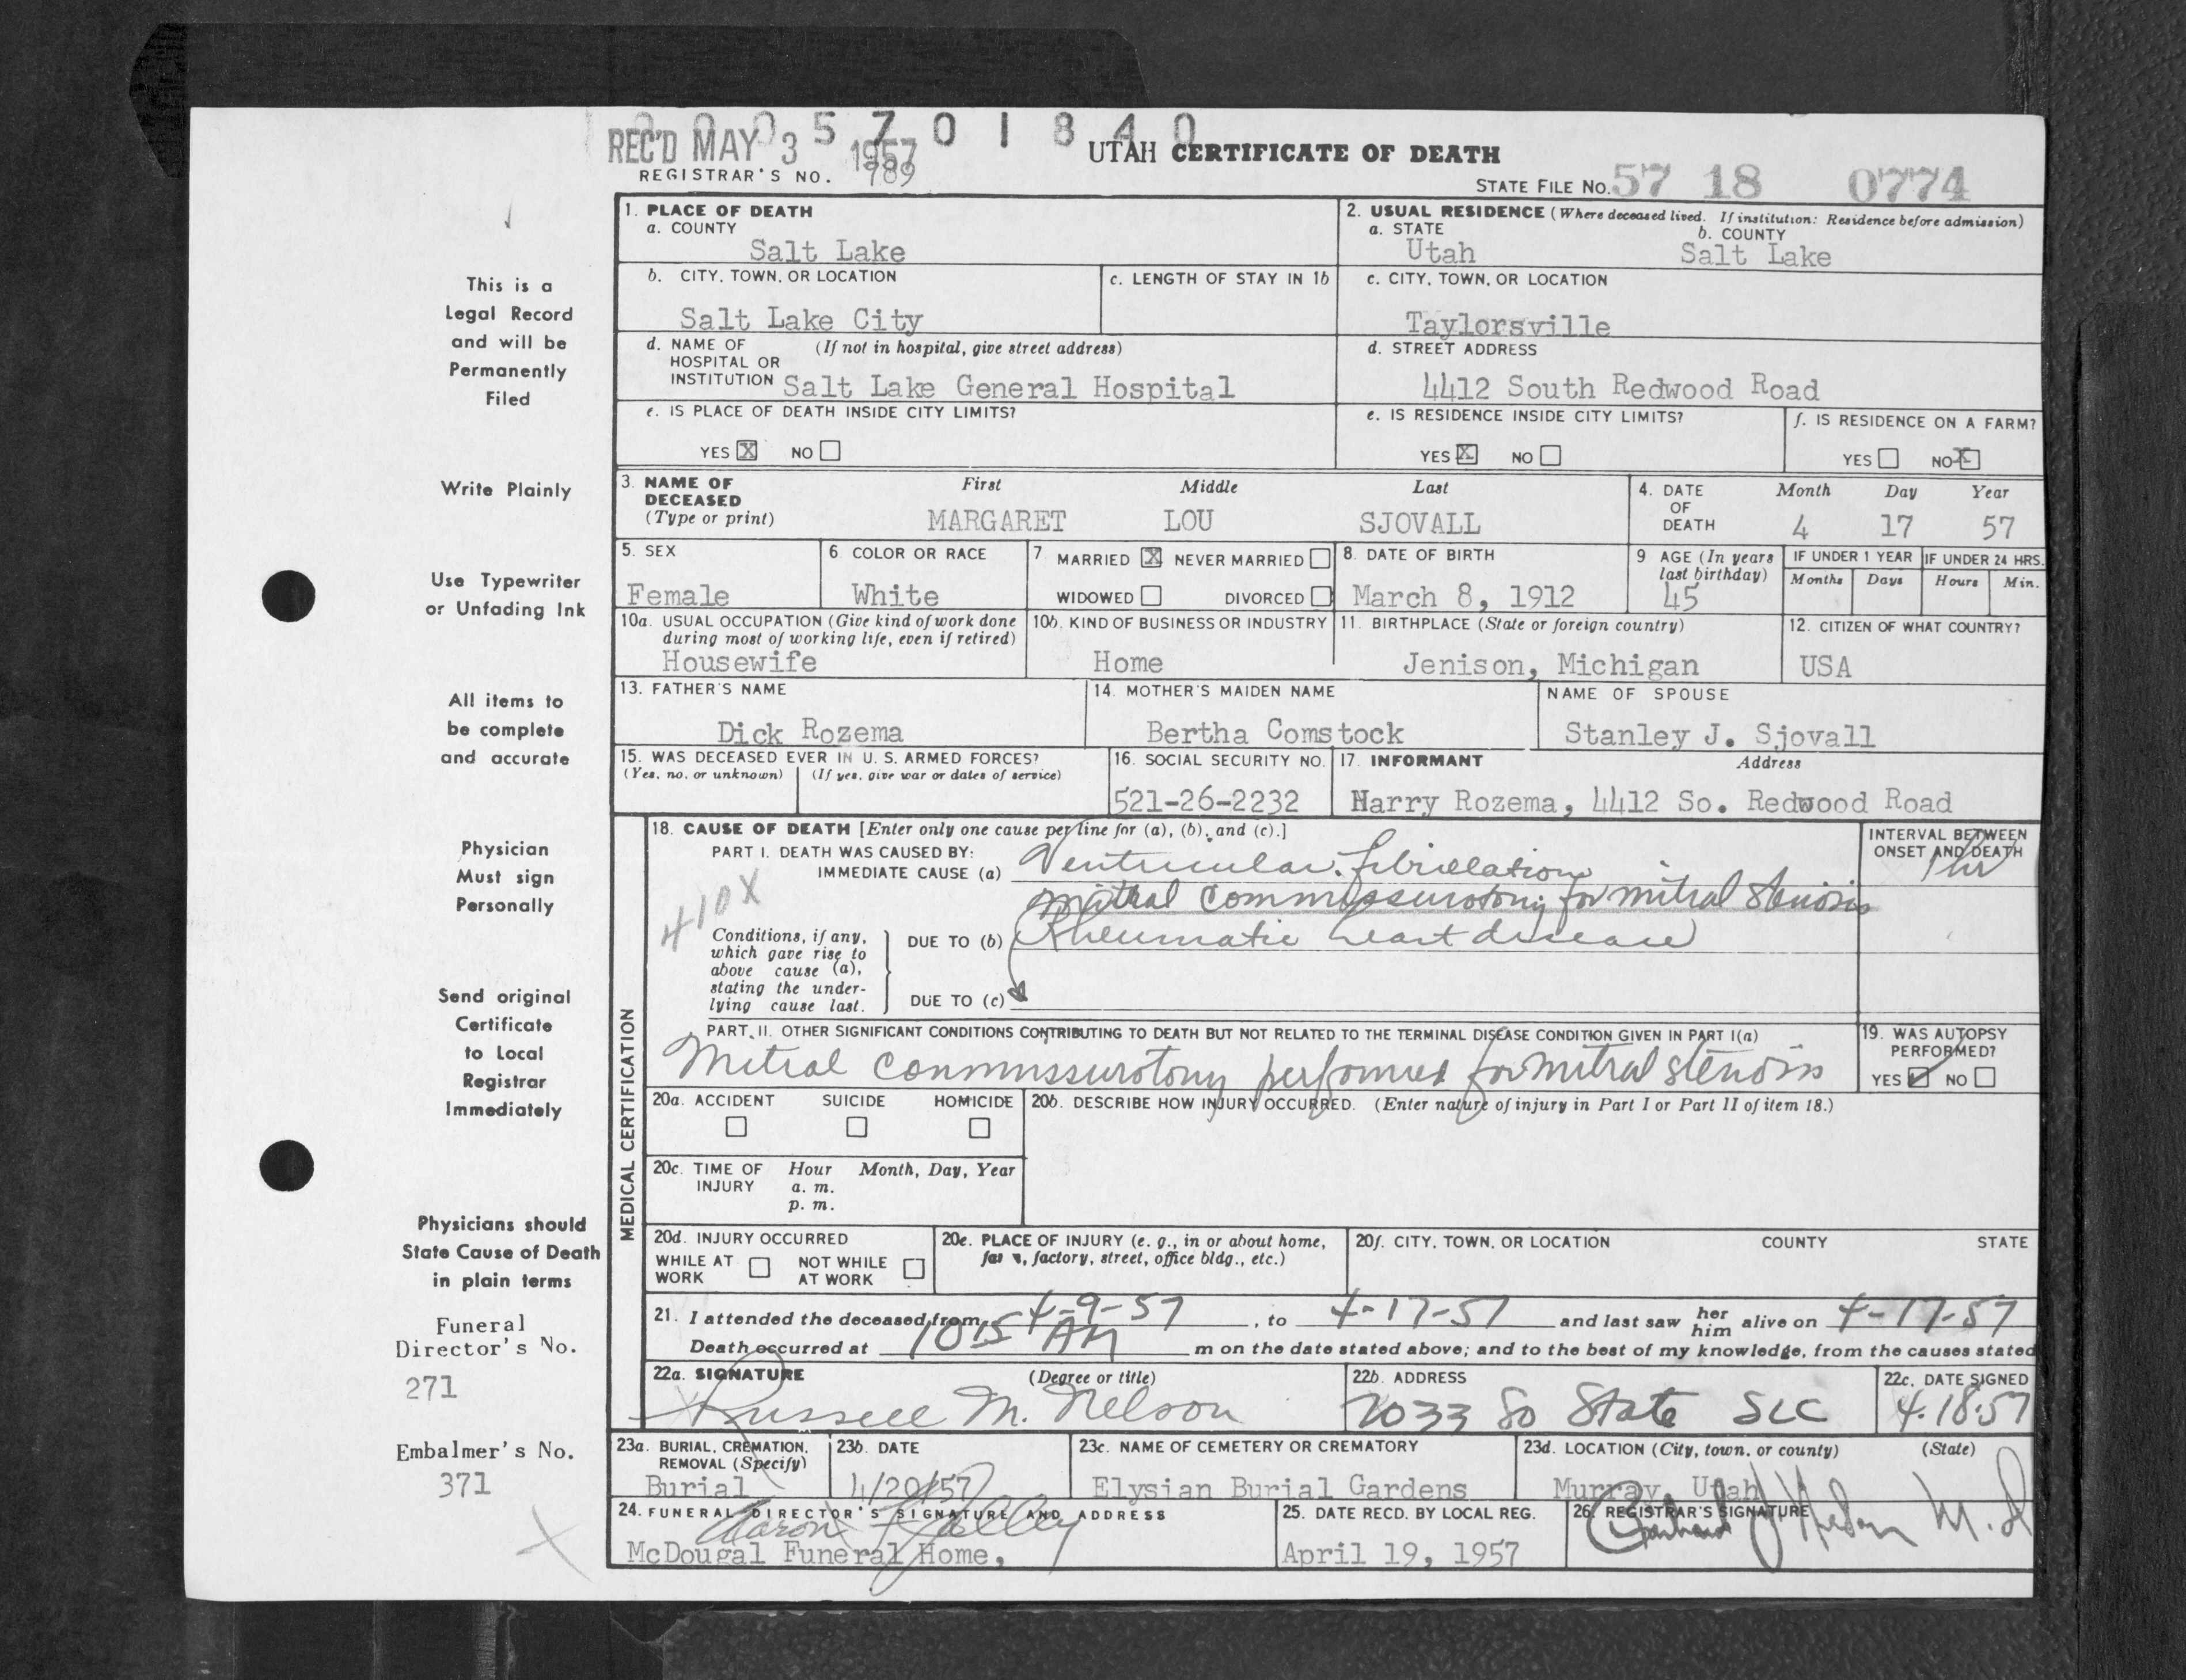 0 0 0 5 7 0 1 8 4 0
REC'D MAY 3 1957
UTAH CERTIFICATE OF DEATH
REGISTRAR'S NO. 789
STATE FILE NO. 57 18 0774
This is a
Legal Record
and will be
Permanently
Filed
Write Plainly
Use Typewriter
or Unfading Ink
All items to
be complete
and accurate
Physician
Must sign
Personally
Send original
Certificate
to Local
Registrar
Immediately
Physicians should
State Cause of Death
in plain terms
Funeral
Director's No.
271
Embalmer's No.
371
1. PLACE OF DEATH
a. COUNTY
Salt Lake
2. USUAL RESIDENCE (Where deceased lived. If institution: Residence before admission)
a. STATE b. COUNTY
Utah Salt Lake
b. CITY, TOWN, OR LOCATION
Salt Lake City
c. LENGTH OF STAY IN 1b
c. CITY, TOWN, OR LOCATION
Taylorsville
d. NAME OF (If not in hospital, give street address)
HOSPITAL OR
INSTITUTION Salt Lake General Hospital
d. STREET ADDRESS
4412 South Redwood Road
e. IS PLACE OF DEATH INSIDE CITY LIMITS?
YES X NO
e. IS RESIDENCE INSIDE CITY LIMITS?
YES X NO
f. IS RESIDENCE ON A FARM?
YES NO X
3. NAME OF First Middle Last
DECEASED
(Type or print) MARGARET LOU SJOVALL
4. DATE Month Day Year
OF
DEATH 4 17 57
5. SEX
Female
6. COLOR OR RACE
White
7. MARRIED X NEVER MARRIED
WIDOWED DIVORCED
8. DATE OF BIRTH
March 8, 1912
9 AGE (In years
last birthday)
45
IF UNDER 1 YEAR IF UNDER 24 HRS.
Months Days Hours Min.
10a. USUAL OCCUPATION (Give kind of work done
during most of working life, even if retired)
Housewife
10b. KIND OF BUSINESS OR INDUSTRY
Home
11. BIRTHPLACE (State or foreign country)
Jenison, Michigan
12. CITIZEN OF WHAT COUNTRY?
USA
13. FATHER'S NAME
Dick Rozema
14. MOTHER'S MAIDEN NAME
Bertha Comstock
NAME OF SPOUSE
Stanley J. Sjovall
15. WAS DECEASED EVER IN U. S. ARMED FORCES?
(Yes, no, or unknown) (If yes, give war or dates of service)
16. SOCIAL SECURITY NO.
521-26-2232
17. INFORMANT Address
Harry Rozema, 4412 So. Redwood Road
MEDICAL CERTIFICATION
18. CAUSE OF DEATH [Enter only one cause per line for (a), (b), and (c).]
PART I. DEATH WAS CAUSED BY:
IMMEDIATE CAUSE (a) Ventricular fibrillation
mitral commissurotomy for mitral stenosis
410X
Conditions, if any,
which gave rise to
above cause (a),
stating the under-
lying cause last.
DUE TO (b) Rheumatic heart disease
DUE TO (c)
INTERVAL BETWEEN
ONSET AND DEATH
1 hr
PART II. OTHER SIGNIFICANT CONDITIONS CONTRIBUTING TO DEATH BUT NOT RELATED TO THE TERMINAL DISEASE CONDITION GIVEN IN PART I(a)
Mitral commissurotomy performed for mitral stenosis
19. WAS AUTOPSY
PERFORMED?
YES ✓ NO
20a. ACCIDENT SUICIDE HOMICIDE
20b. DESCRIBE HOW INJURY OCCURRED. (Enter nature of injury in Part I or Part II of item 18.)
20c. TIME OF Hour Month, Day, Year
INJURY a. m.
p. m.
20d. INJURY OCCURRED
WHILE AT WORK NOT WHILE AT WORK
20e. PLACE OF INJURY (e. g., in or about home,
farm, factory, street, office bldg., etc.)
20f. CITY, TOWN, OR LOCATION COUNTY STATE
21. I attended the deceased from 4-9-57, to 4-17-57 and last saw her him alive on 4-17-57
Death occurred at 1015 AM m on the date stated above; and to the best of my knowledge, from the causes stated
22a. SIGNATURE (Degree or title)
Russell M. Nelson
22b. ADDRESS
2033 So State SLC
22c. DATE SIGNED
4.18.57
23a. BURIAL, CREMATION,
REMOVAL (Specify)
Burial
23b. DATE
4/20/57
23c. NAME OF CEMETERY OR CREMATORY
Elysian Burial Gardens
23d. LOCATION (City, town, or county) (State)
Murray, Utah
24. FUNERAL DIRECTOR'S SIGNATURE AND ADDRESS
Aaron
McDougal Funeral Home,
25. DATE RECD. BY LOCAL REG.
April 19, 1957
26. REGISTRAR'S SIGNATURE
M.D